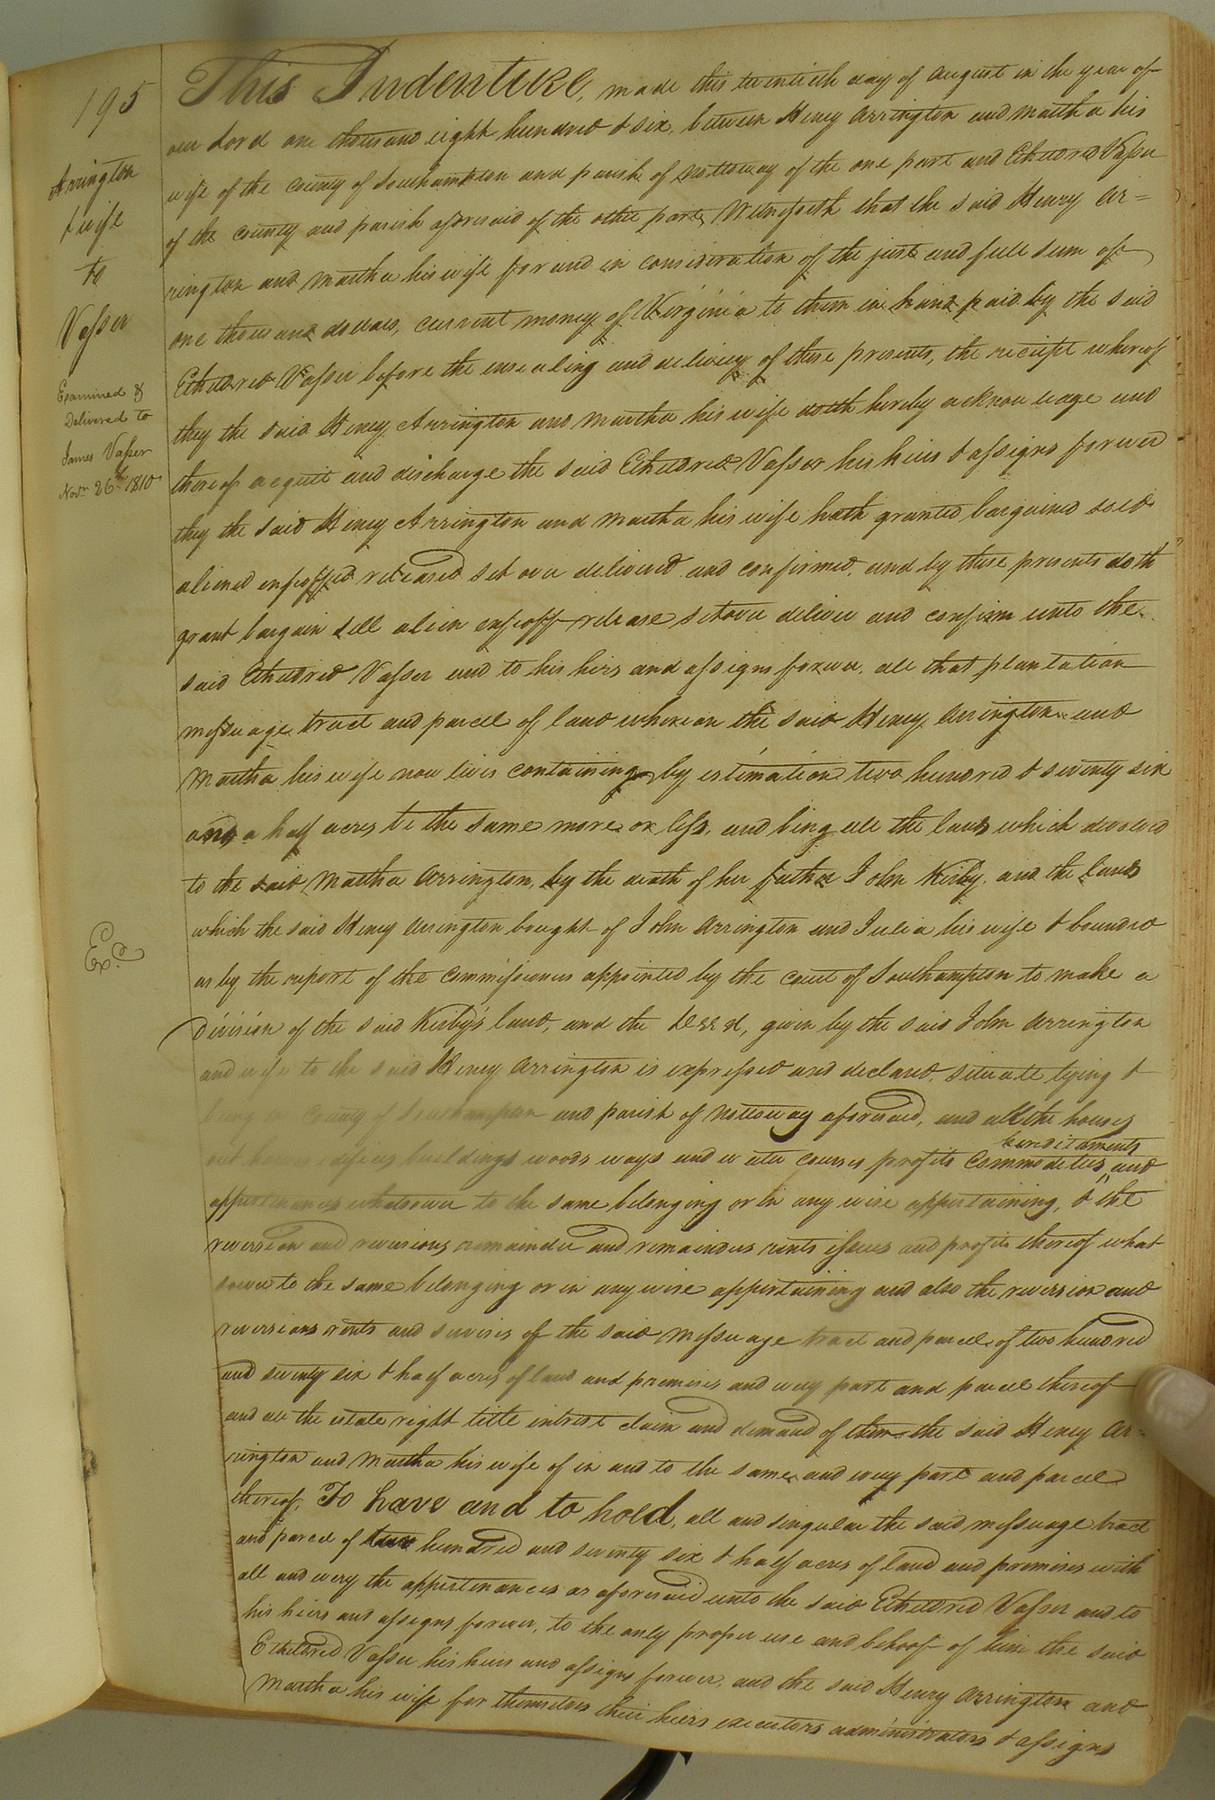 195
Arrington
& wife
to
Vasser
Examined &
Delivered to
James Vasser
Novr 26th 1810
Exd
This Indenture, made this twentieth day of August in the year of
our Lord one thousand eight hundred & six, between Henry Arrington and Martha his
wife of the county of Southampton and parish of Nottoway of the one part and Etheldred Vasser
of the county and parish aforesaid of the other part, Witnesseth that the said Henry Ar=
rington and Martha his wife for and in consideration of the just and full sum of
one thousand dollars, current money of Virginia to them in hand paid by the said
Etheldred Vasser before the ensealing and delivery of these presents, the receipt whereof
they the said Henry Arrington and Martha his wife doth hereby acknowledge and
thereof acquit and discharge the said Etheldred Vasser his heirs & assigns forever
they the said Henry Arrington and Martha his wife hath granted bargained sold
aliened enfeoffed released set over delivered and confirmed, and by these presents doth
grant bargain sell alien enfeoff release setover deliver and confirm unto the
said Etheldred Vasser and to his heirs and assigns forever, all that plantation
messuage tract and parcel of land whereon the said Henry Arrington and
Martha his wife now lives containing by estimation two hundred & seventy six
and a half acres be the same more or less, and being all the land which devolved
to the said Martha Arrington, by the death of her father John Kirby, and the land
which the said Henry Arrington bought of John Arrington and Julia his wife & bounded
as by the report of the commissioners appointed by the court of Southampton to make a
division of the said Kirby's land, and the deed, given by the said John Arrington
and wife to the said Henry Arrington is expressed and declared, situate lying &
being in county of Southampton and parish of Nottoway aforesaid, and all the houses
out houses edifices buildings woods ways and water courses profits commodities hereditaments and
appurtenances whatsoever to the same belonging or in any wise appertaining, & the
reversion and reversions remainder and remainders rents issues and profits thereof what
soever to the same belonging or in any wise appertaining and also the reversion and
reversions rents and services of the said messuage tract and parcel of two hundred
and seventy six & half acres of land and premises and every part and parcel thereof
and all the estate right title intrest claim and demand of them the said Henry Ar=
rington and Martha his wife of in and to the same and every part and parcel
thereof, To have and to hold, all and singular the said messuage tract
and parcel of two hundred and seventy six & half acres of land and premises with
all and every the appurtenances as aforesaid unto the said Etheldred Vasser and to
his heirs and assigns forever, to the only proper use and behoof of him the said
Etheldred Vasser his heirs and assigns forever, and the said Henry Arrington and
Martha his wife for themselves their heirs executors administrators & assigns